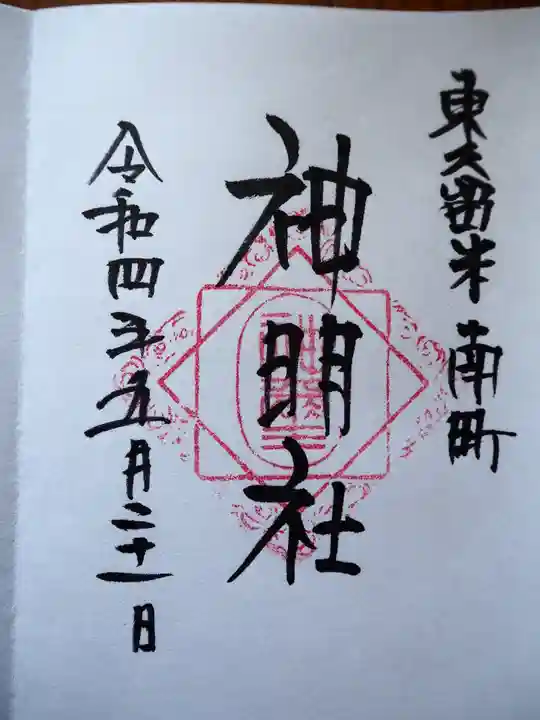 東久留米南町
神明社
令和四年五月二十一日